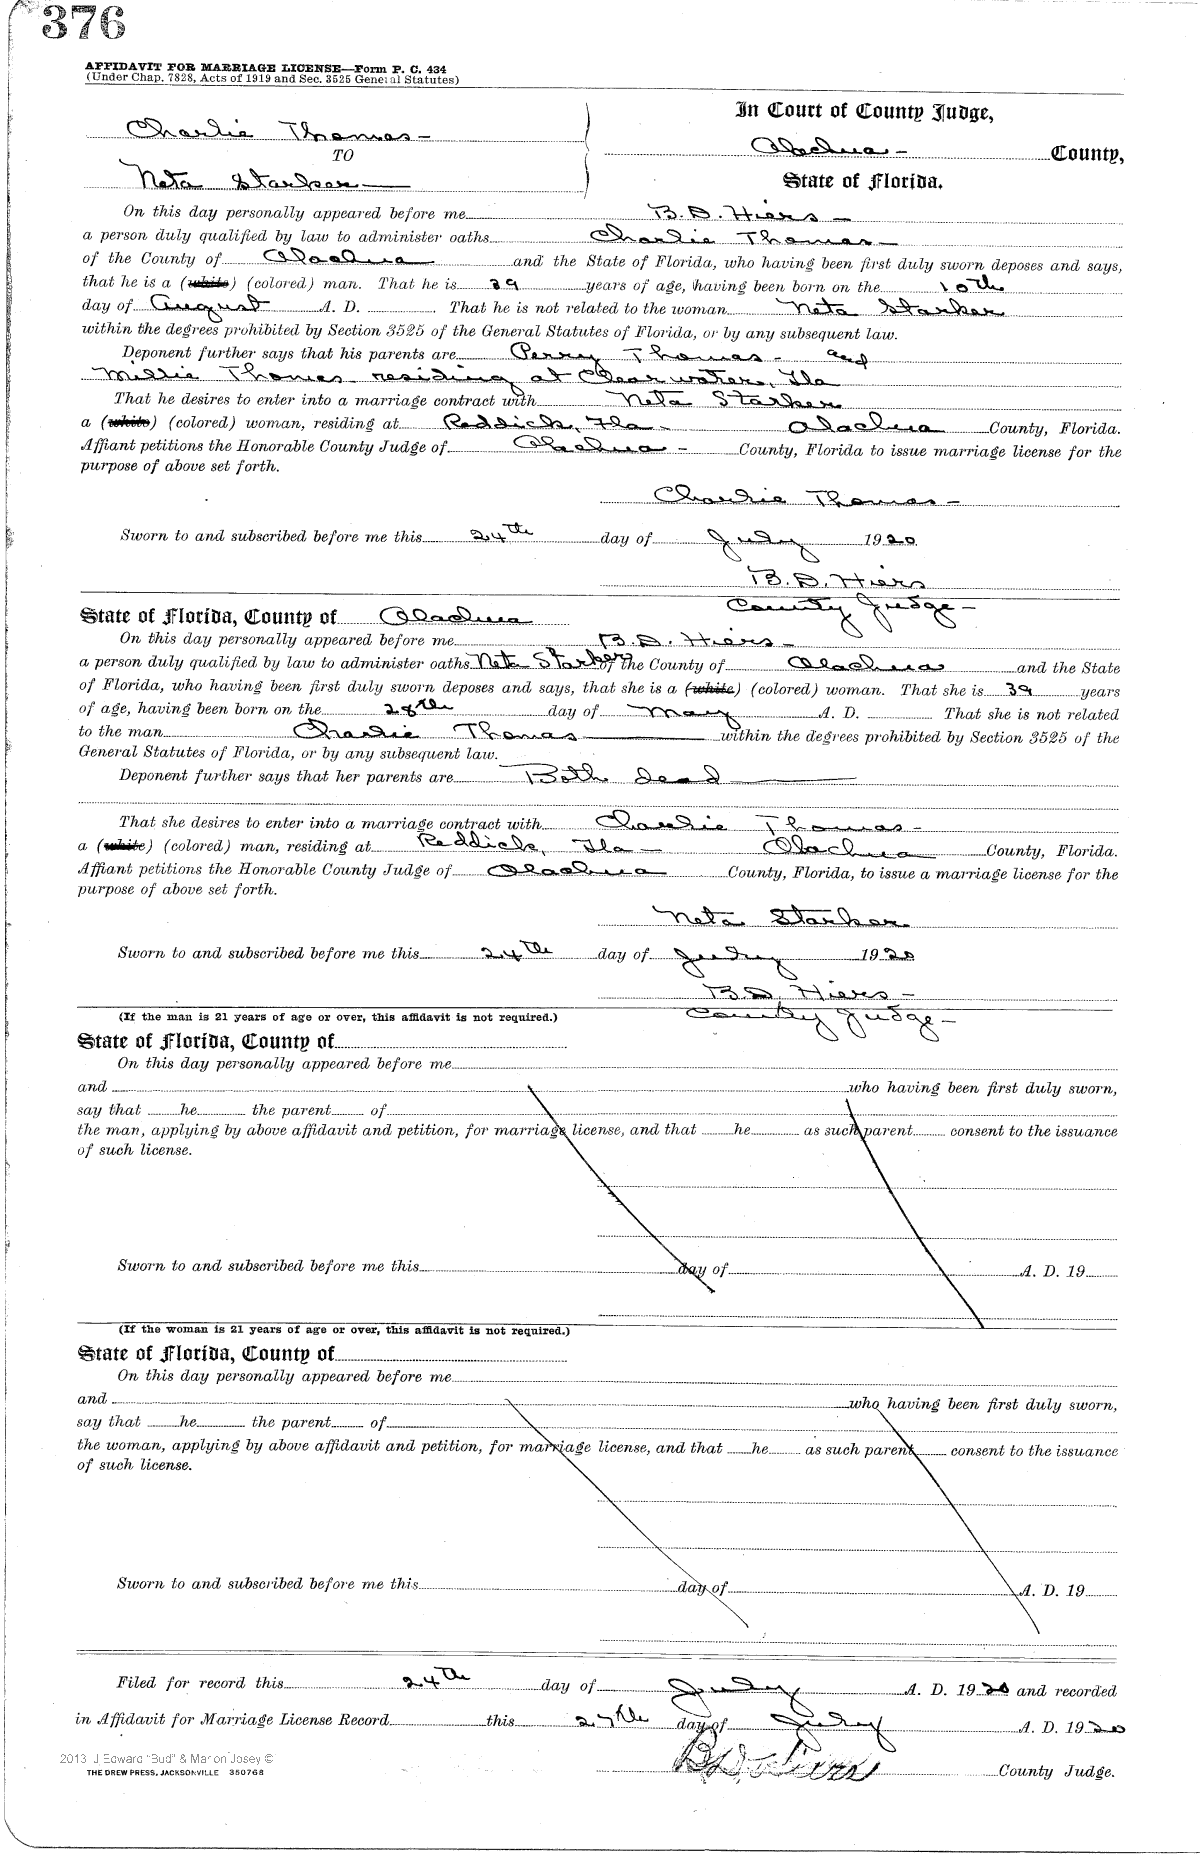 376
AFFIDAVIT FOR MARRIAGE LICENSE—Form P. C. 434
(Under Chap. 7828, Acts of 1919 and Sec. 3525 General Statutes)
Charlie Thomas —
TO
Neta Starker —
In Court of County Judge,
Alachua — County,
State of Florida.
On this day personally appeared before me B. D. Hiers —
a person duly qualified by law to administer oaths Charlie Thomas —
of the County of Alachua and the State of Florida, who having been first duly sworn deposes and says,
that he is a (white) (colored) man. That he is 39 years of age, having been born on the 10th
day of August A. D. That he is not related to the woman Neta Starker
within the degrees prohibited by Section 3525 of the General Statutes of Florida, or by any subsequent law.
Deponent further says that his parents are Perry Thomas - and
Millie Thomas residing at Clearwater, Fla
That he desires to enter into a marriage contract with Neta Starker
a (white) (colored) woman, residing at Reddick, Fla - Alachua County, Florida.
Affiant petitions the Honorable County Judge of Alachua - County, Florida to issue marriage license for the
purpose of above set forth.
Charlie Thomas —
Sworn to and subscribed before me this 24th day of July 1920
B. D. Hiers
County Judge —
State of Florida, County of Alachua
On this day personally appeared before me B. D. Hiers —
a person duly qualified by law to administer oaths Neta Starker of the County of Alachua and the State
of Florida, who having been first duly sworn deposes and says, that she is a (white) (colored) woman. That she is 39 years
of age, having been born on the 28th day of May A. D. That she is not related
to the man Charlie Thomas — within the degrees prohibited by Section 3525 of the
General Statutes of Florida, or by any subsequent law.
Deponent further says that her parents are Both dead —
That she desires to enter into a marriage contract with Charlie Thomas —
a (white) (colored) man, residing at Reddick, Fla — Alachua County, Florida.
Affiant petitions the Honorable County Judge of Alachua County, Florida, to issue a marriage license for the
purpose of above set forth.
Neta Starker
Sworn to and subscribed before me this 24th day of July 1920
B. D. Hiers —
County Judge —
(If the man is 21 years of age or over, this affidavit is not required.)
State of Florida, County of
On this day personally appeared before me
and who having been first duly sworn,
say that he the parent of
the man, applying by above affidavit and petition, for marriage license, and that he as such parent consent to the issuance
of such license.
Sworn to and subscribed before me this day of A. D. 19
(If the woman is 21 years of age or over, this affidavit is not required.)
State of Florida, County of
On this day personally appeared before me
and who having been first duly sworn,
say that he the parent of
the woman, applying by above affidavit and petition, for marriage license, and that he as such parent consent to the issuance
of such license.
Sworn to and subscribed before me this day of A. D. 19
Filed for record this 24th day of July A. D. 1920 and recorded
in Affidavit for Marriage License Record this 27th day of July A. D. 1920
B. D. Hiers County Judge.
2013 J Edward "Bud" & Marion Josey ©
THE DREW PRESS, JACKSONVILLE 350768